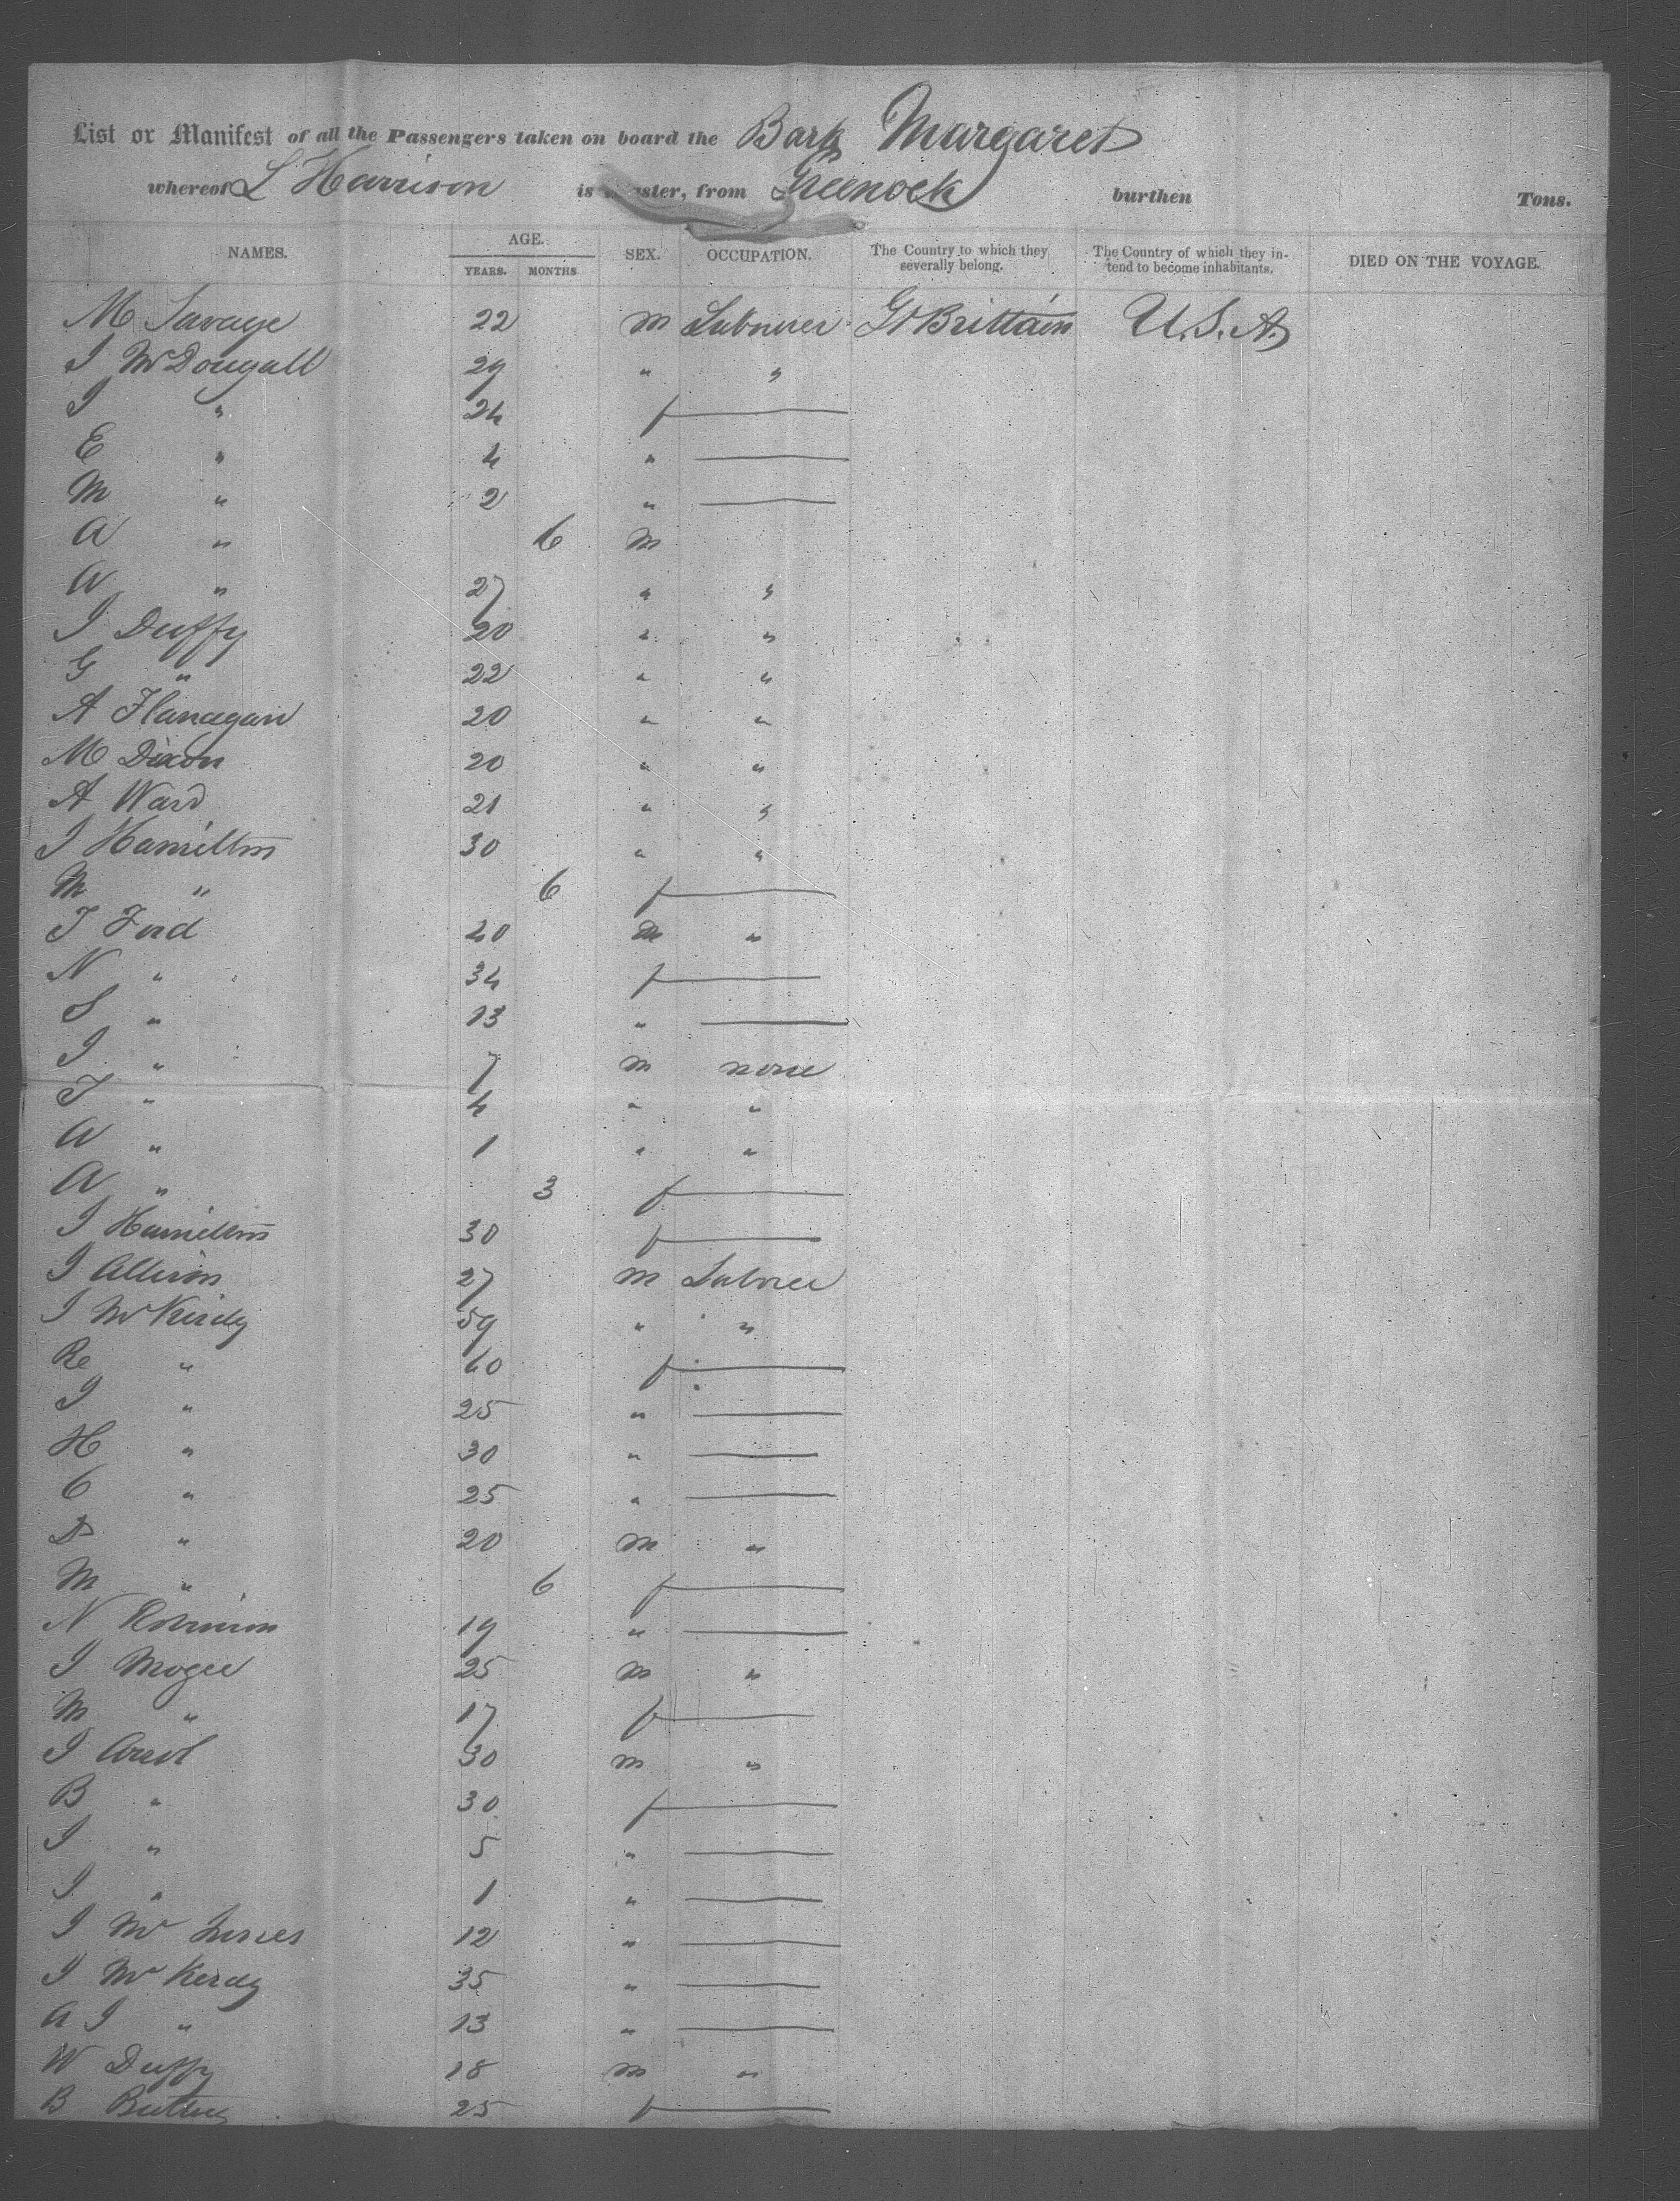 List or Manifest of all the Passengers taken on board the Bark Margaret
whereof L Harrison is master, from Greenock burthen Tons.
NAMES. AGE. YEARS. MONTHS SEX. OCCUPATION. The Country to which they severally belong. The Country of which they intend to become inhabitants. DIED ON THE VOYAGE.
M Savage 22 m Labourer Gt Brittain U.S.A.
J McDougall 29 " "
J " 24 f —
E " 4 " —
M " 2 " —
A " 6 m
A " 27 " "
J Duffy 20 " "
G " 22 " "
A Flanagan 20 " "
M Dixon 20 " "
A Ward 21 " "
J Hamilton 30 " "
M " 6 f —
T Ford 40 m "
N " 34 f —
S " 13 " —
J " 7 m none
T " 4 " "
A " 1 " "
A " 3 f —
J Hamilton 30 f —
J Allison 27 m Labourer
J McKirdy 59 " "
Re " 60 f —
J " 25 " —
H " 30 " —
C " 25 " —
D " 20 m "
M " 6 f —
N Robinson 19 " —
J Mogee 25 m "
M " 17 f —
J 30 m "
B " 30 f —
J " 5 " —
J " 1 " —
J Mc 12 " —
J McKerdy 35 " —
A J " 13 " —
W Duffy 18 m "
B 25 f —